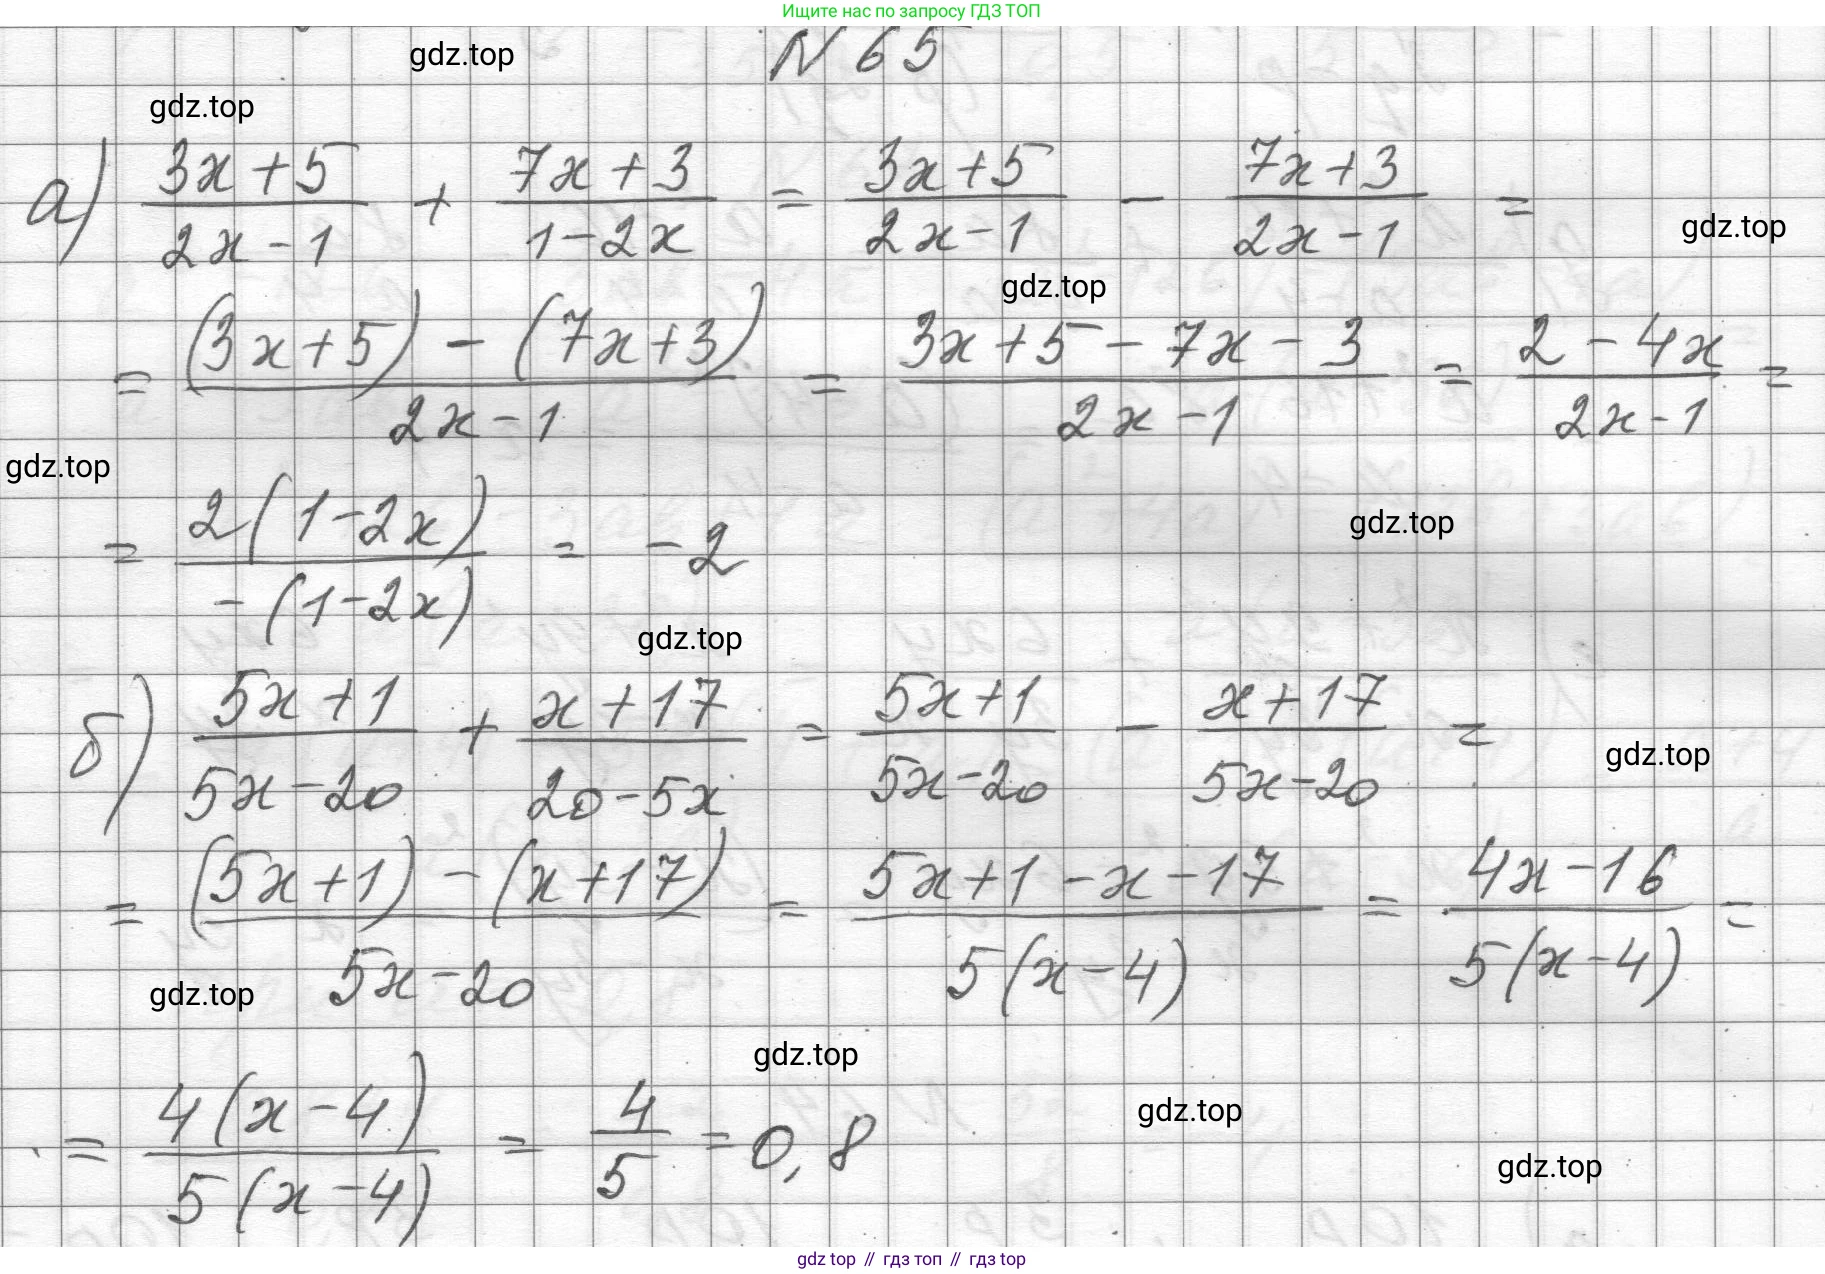 Ищите нас по запросу ГДЗ ТОП
N 65
gdz.top
gdz.top
а) (3x+5)/(2x-1) + (7x+3)/(1-2x) = (3x+5)/(2x-1) - (7x+3)/(2x-1) =
gdz.top
gdz.top
= ((3x+5)-(7x+3))/(2x-1) = (3x+5-7x-3)/(2x-1) = (2-4x)/(2x-1) =
gdz.top
= (2(1-2x))/(-(1-2x)) = -2
gdz.top
gdz.top
б) (5x+1)/(5x-20) + (x+17)/(20-5x) = (5x+1)/(5x-20) - (x+17)/(5x-20) =
gdz.top
= ((5x+1)-(x+17))/(5x-20) = (5x+1-x-17)/(5(x-4)) = (4x-16)/(5(x-4)) =
gdz.top
gdz.top
= (4(x-4))/(5(x-4)) = 4/5 = 0,8
gdz.top
gdz.top
gdz top // гдз топ // гдз top